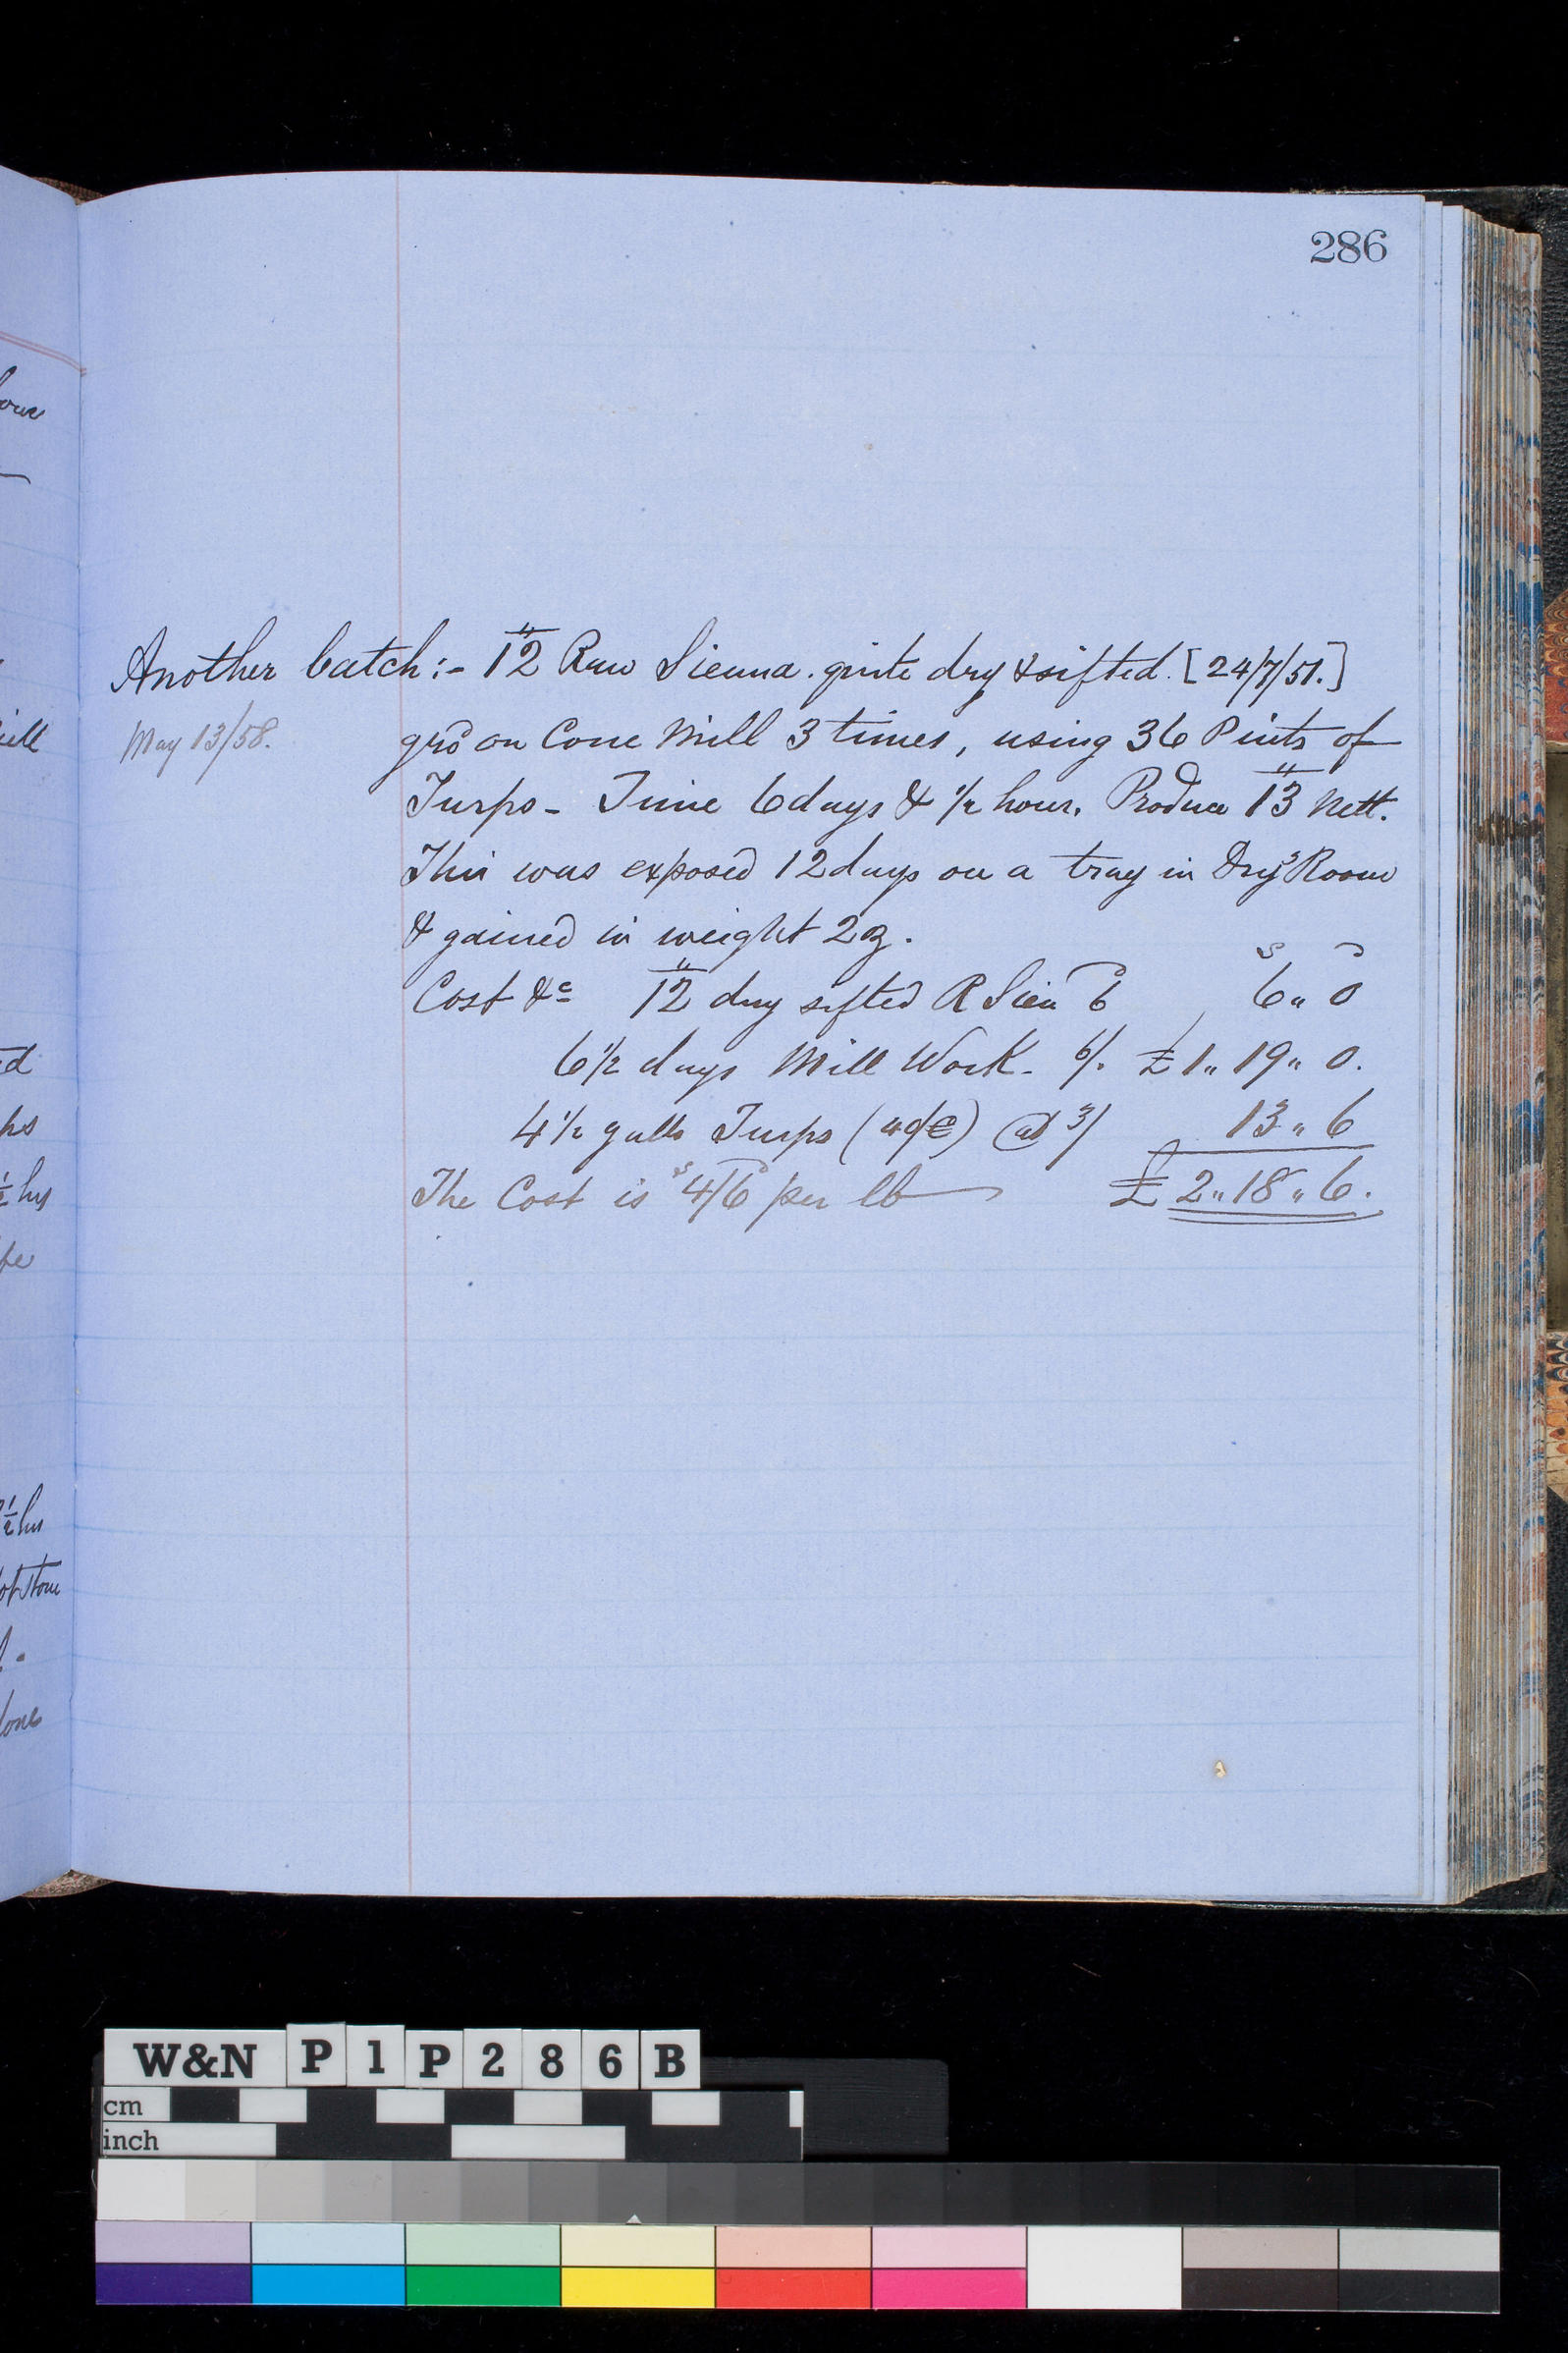 286
Another batch:- 12 Raw Sienna. quite dry & sifted. [24/7/51.]
May 13/58. grd on Cone Mill 3 times, using 36 Pints of
Turps- Time 6 days & 1/2 hour. Produce 13 nett.
This was exposed 12 days on a tray in Dryg Room
& gained in weight 2oz.
Cost &c 12 dry sifted R Sien 6d s 6 „ 0 d
6 1/2 days Mill Work- 6/. £1 „ 19 „ 0.
4 1/2 galls Turps @ 3/ 13 „ 6
The Cost is s 4/6 d per lb £ 2 „ 18 „ 6.
ill
ed
1/2 hrs
1/2 hrs
W&N P1P286B
cm
inch